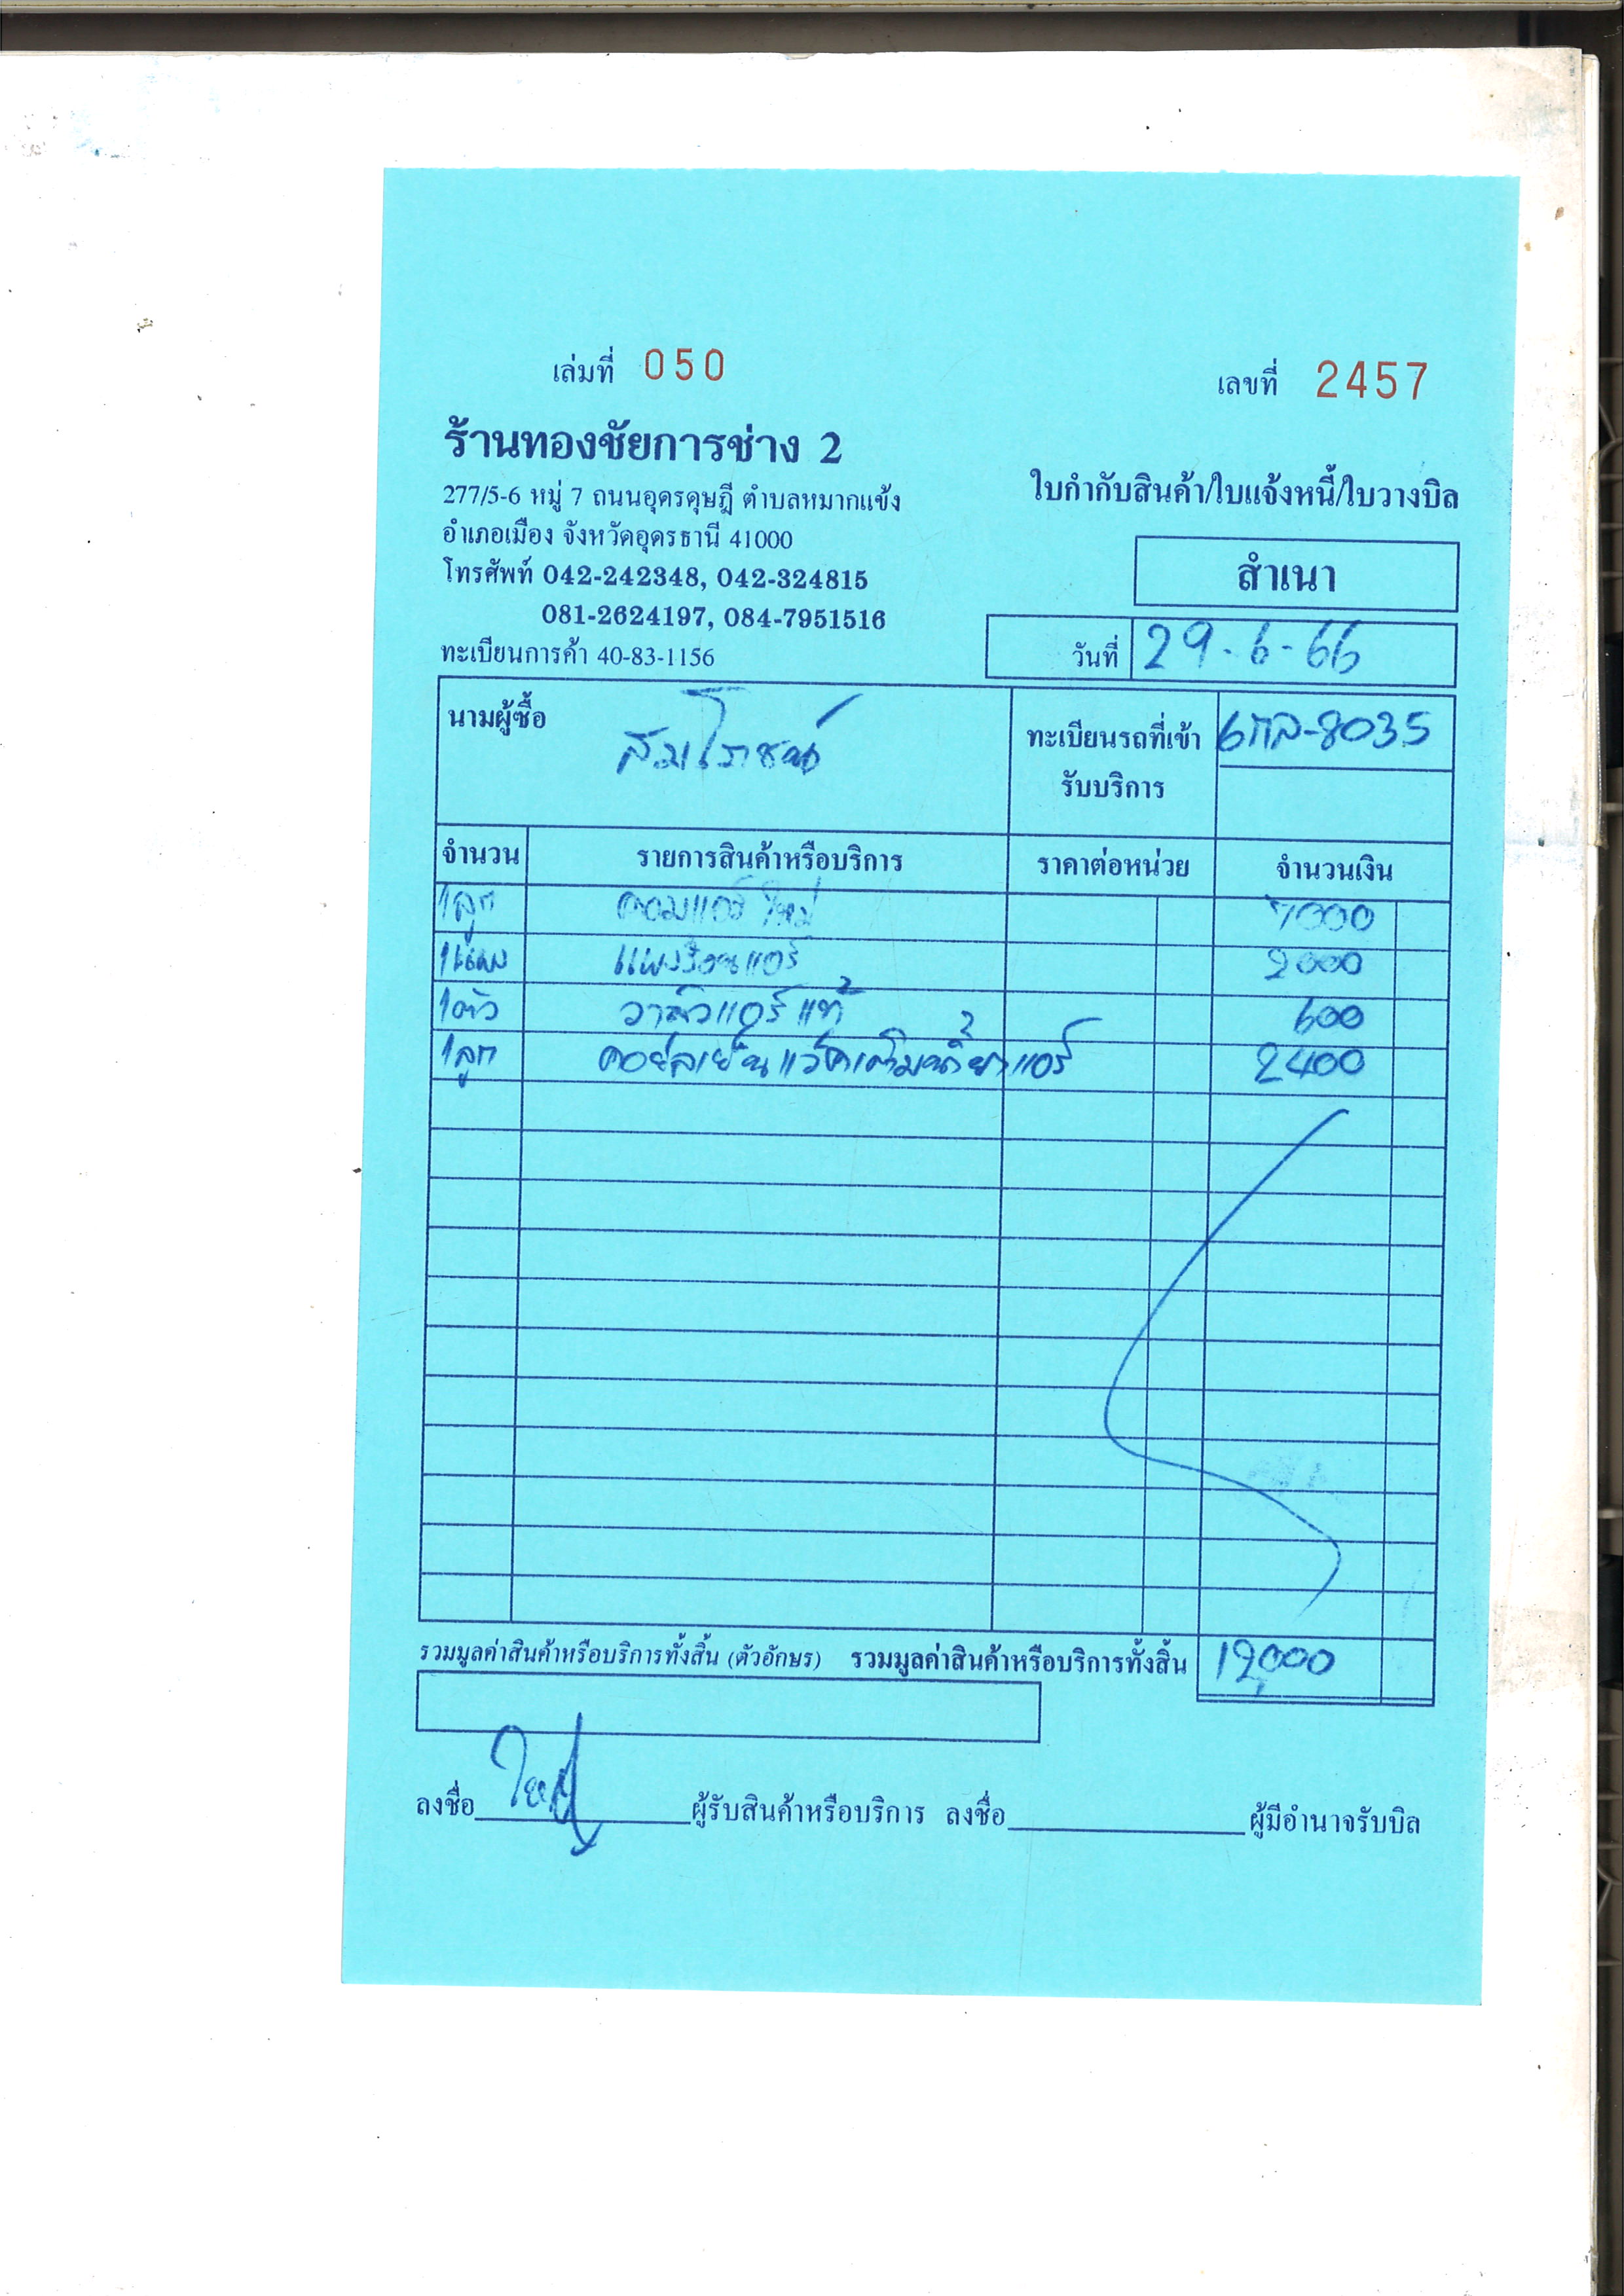 เล่มที่ 050
เลขที่ 2457
ร้านทองชัยการช่าง 2
277/5-6 หมู่ 7 ถนนอุดรดุษฎี ตำบลหมากแข้ง
อำเภอเมือง จังหวัดอุดรธานี 41000
โทรศัพท์ 042-242348, 042-324815
081-2624197, 084-7951516
ทะเบียนการค้า 40-83-1156
ใบกำกับสินค้า/ใบแจ้งหนี้/ใบวางบิล
สำเนา
วันที่ 29-6-66
นามผู้ซื้อ สมโภชน์
ทะเบียนรถที่เข้า 6กล-8035
รับบริการ
จำนวน รายการสินค้าหรือบริการ ราคาต่อหน่วย จำนวนเงิน
1ลูก คอมแอร์ใหม่ 7000
1แผง แผงร้อนแอร์ 2000
1ตัว วาล์วแอร์แท้ 600
1ลูก คอยล์เย็นแว๊คเติมน้ำยาแอร์ 2400
รวมมูลค่าสินค้าหรือบริการทั้งสิ้น (ตัวอักษร) รวมมูลค่าสินค้าหรือบริการทั้งสิ้น 12,000
ลงชื่อ ผู้รับสินค้าหรือบริการ ลงชื่อ ผู้มีอำนาจรับบิล